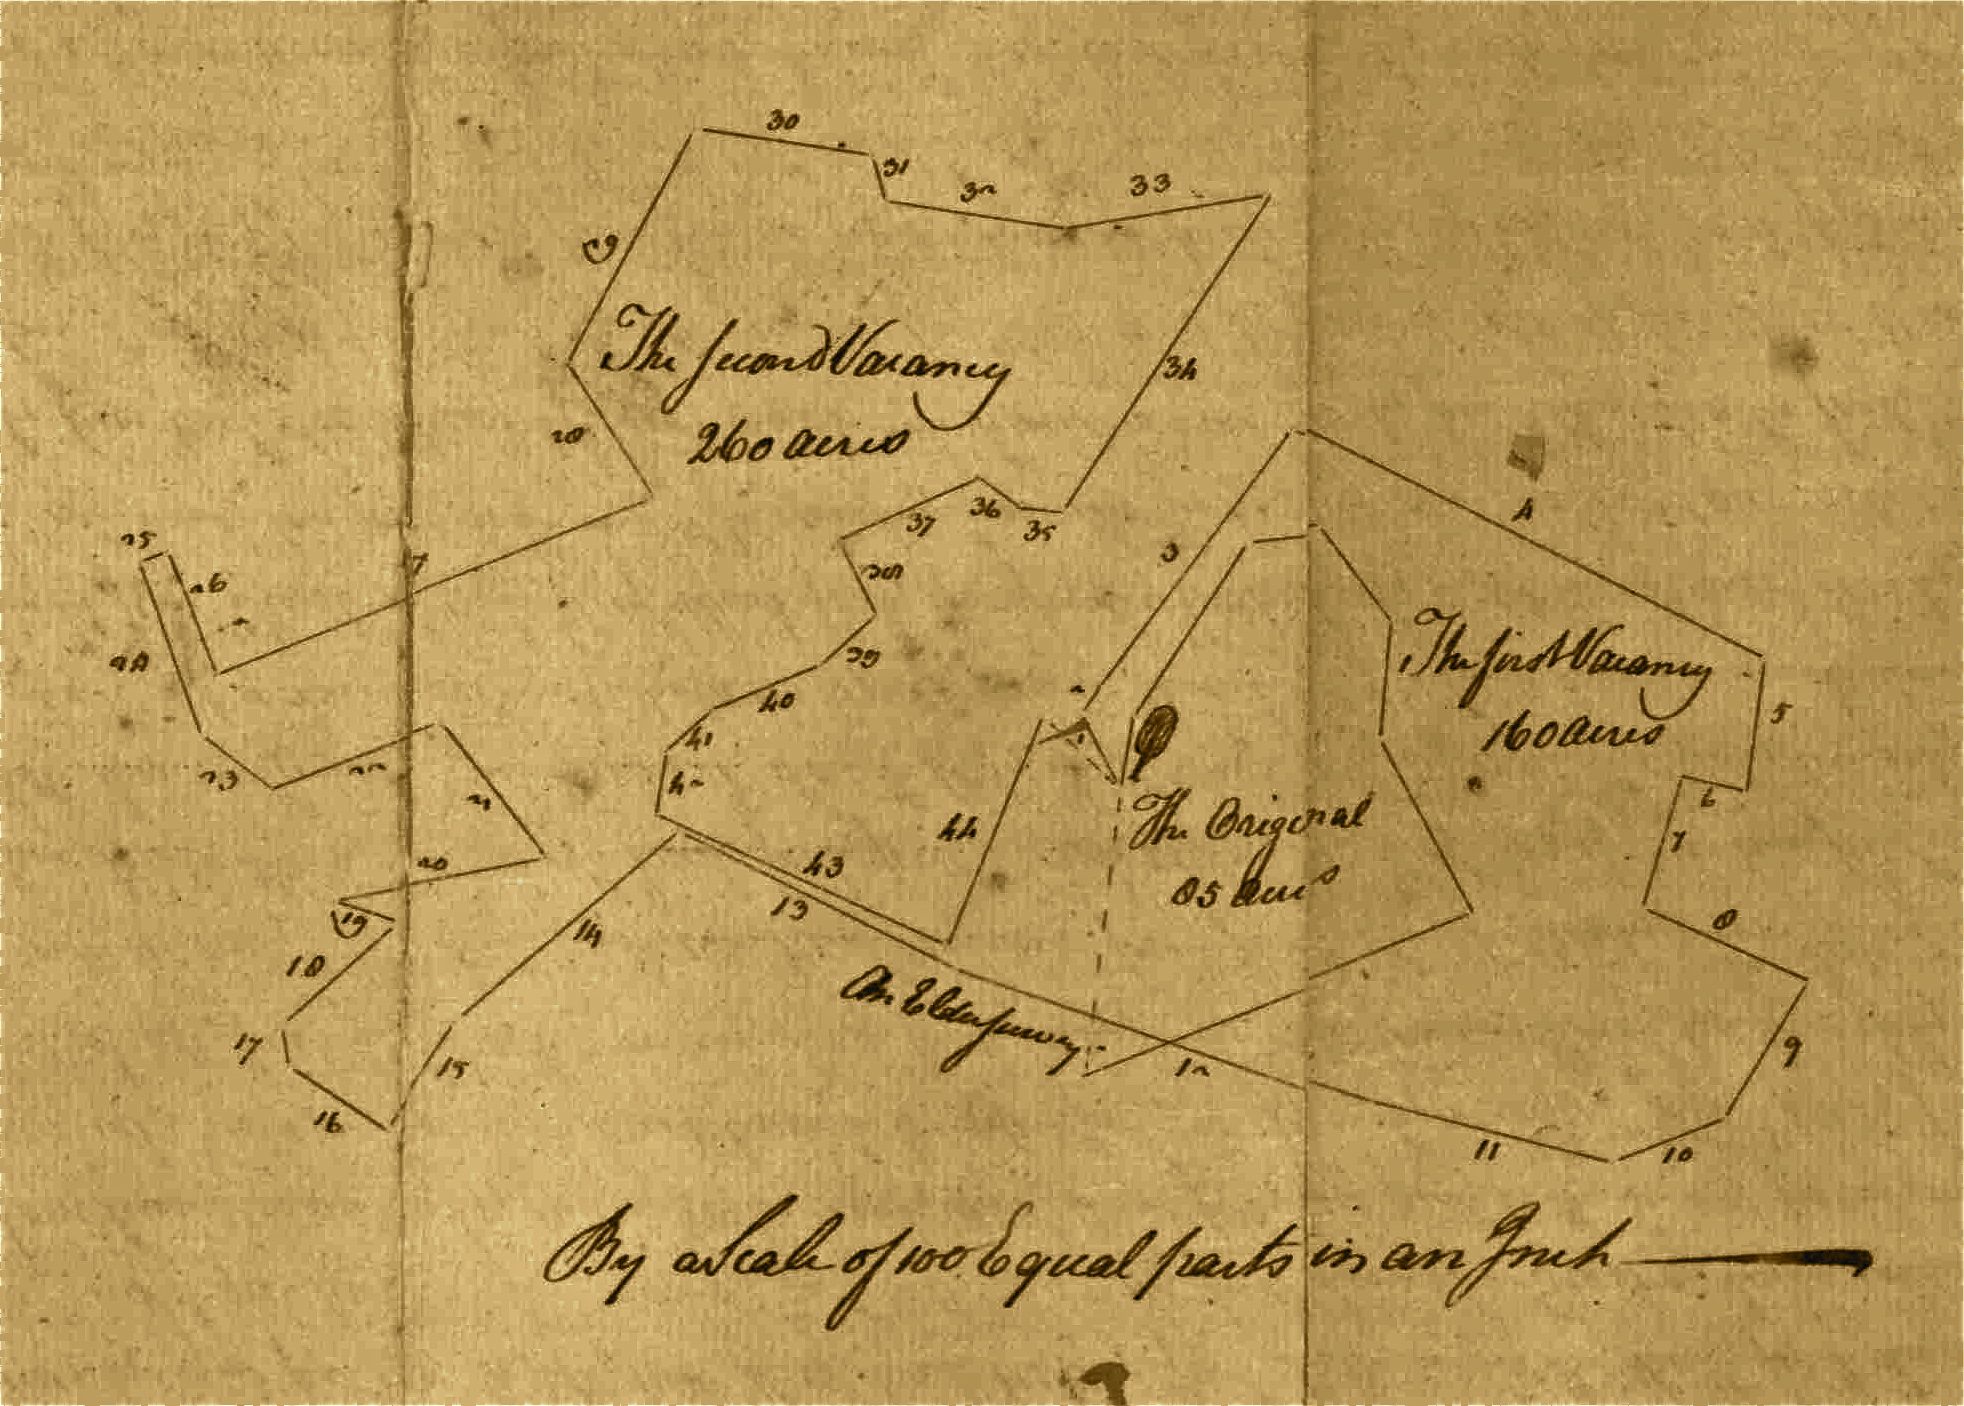 30
31
32
33
29
The second Vacancy
34
28
260 acres
4
37
36
35
3
25
27
26
38
24
39
The first Vacancy
2
40
5
160 acres
41
1
23
22
42
6
21
44
The Original
7
20
43
85 acres
13
19
8
14
18
An Elder survey
17
9
15
12
16
11
10
By a Scale of 100 Equal parts in an Inch